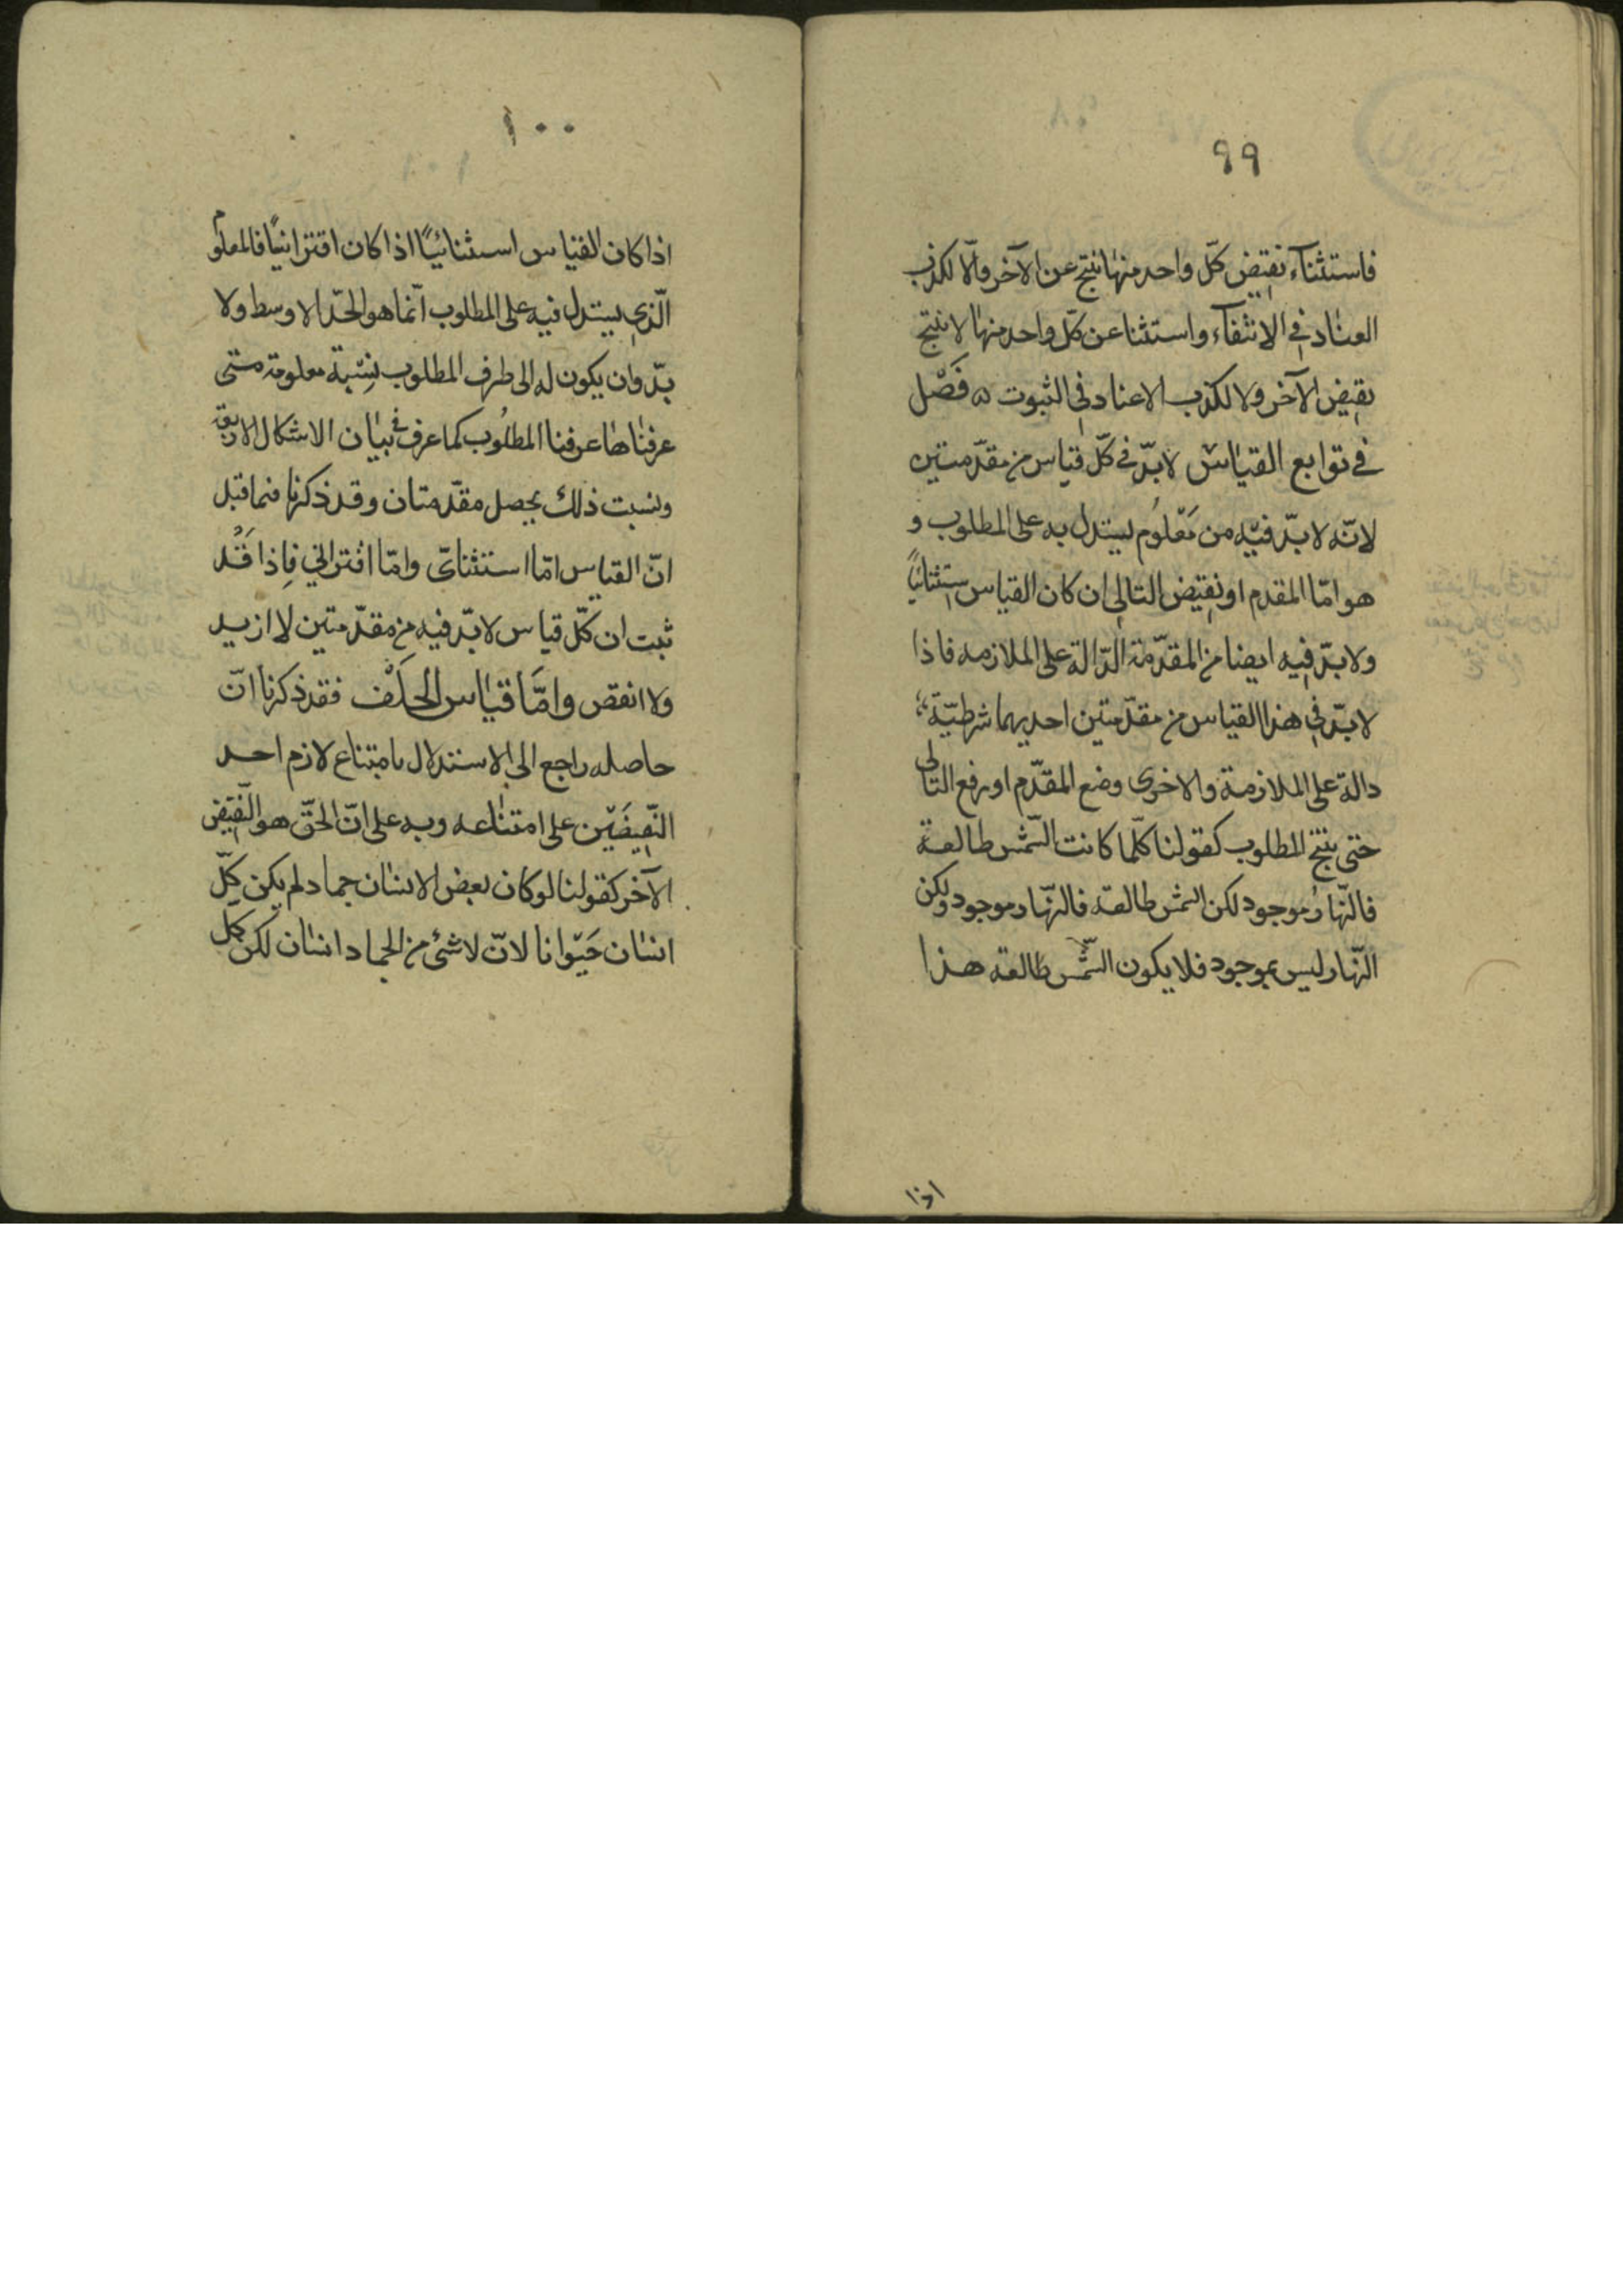 ٩٩
فاستثناء نقيض كلّ واحد منها ينتج عن الآخر والّا لكذب
العناد في الانتفآء واستثنا عن كلّ واحد منها لا ينتج
نقيض الآخر ولا لكذب الاعناد في الثبوت فَصْل
في توابع القياس لا بدّ في كلّ قياس من مقدّمتين
لانّه لا بدّ فيه من مَعْلوُم ليستدل به على المطلوب و
هو امّا المقدم او نقيض التالي ان كان القياس ستثنائيّاً
ولا بدّ فيه ايضا من المقدّمة الدّالة على الملازمه فاذا
لا بدّ في هذا القياس من مقدّمتين احديهما شرطيّة
دالة على الملازمة والاخرى وضع المقدّم او رفع التالى
حتى ينتج المطلوب كقولنا كلّما كانت الشّمس طالعة
فالنّهار موجود لكن الشمس طالعة فالنّهار موجود ولكن
النّهار ليس بموجود فلا يكون الشّمس طالعة هذا
اذا
١٠٠
اذا كان القياس استثنائيّاً اذا كان اقترانيّاً فالمعلوم
الّذي يستدل فيه على المطلوب انّما هو الحدّ الاوسط ولا
بدّ وان يكون له الى طرف المطلوب نسِْبة معلومة متى
عرفناها عرفنا المطلوُب كما عرف في بيان الاشكال الاربعة
ونسبت ذلك يحصل مقدّمتان وقد ذكرنا فيما قبل
انّ القياس امّا استثنائى وامّا اقتراني فاِذا قَدْ
ثبت ان كلّ قياس لا بدّ فيه من مقدّمتين لا ازيد
ولا انقص وامَّا قياس الخلَْف فقد ذكرنا انّ
حاصله راجع الى الاستدلال بامتناع لازم احد
النّقيضَيْن على امتناعه وبه على انّ الحقّ هو النّقيَض
الآخر كقولنا لو كان بعض الانسان جماد لم يكن كلّ
انسان حَيْوانا لانّ لا شئ من الجماد انسان لكن كل